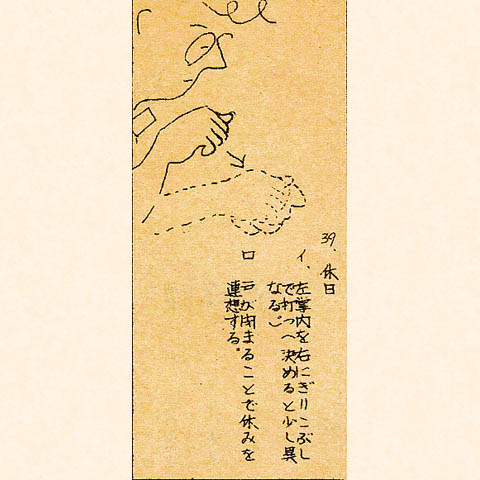 39. 休日
イ、左掌内を右にぎりこぶし
で打つへ決めると少し異
なる。」
ロ 戸が閉まることで休みを
連想する。